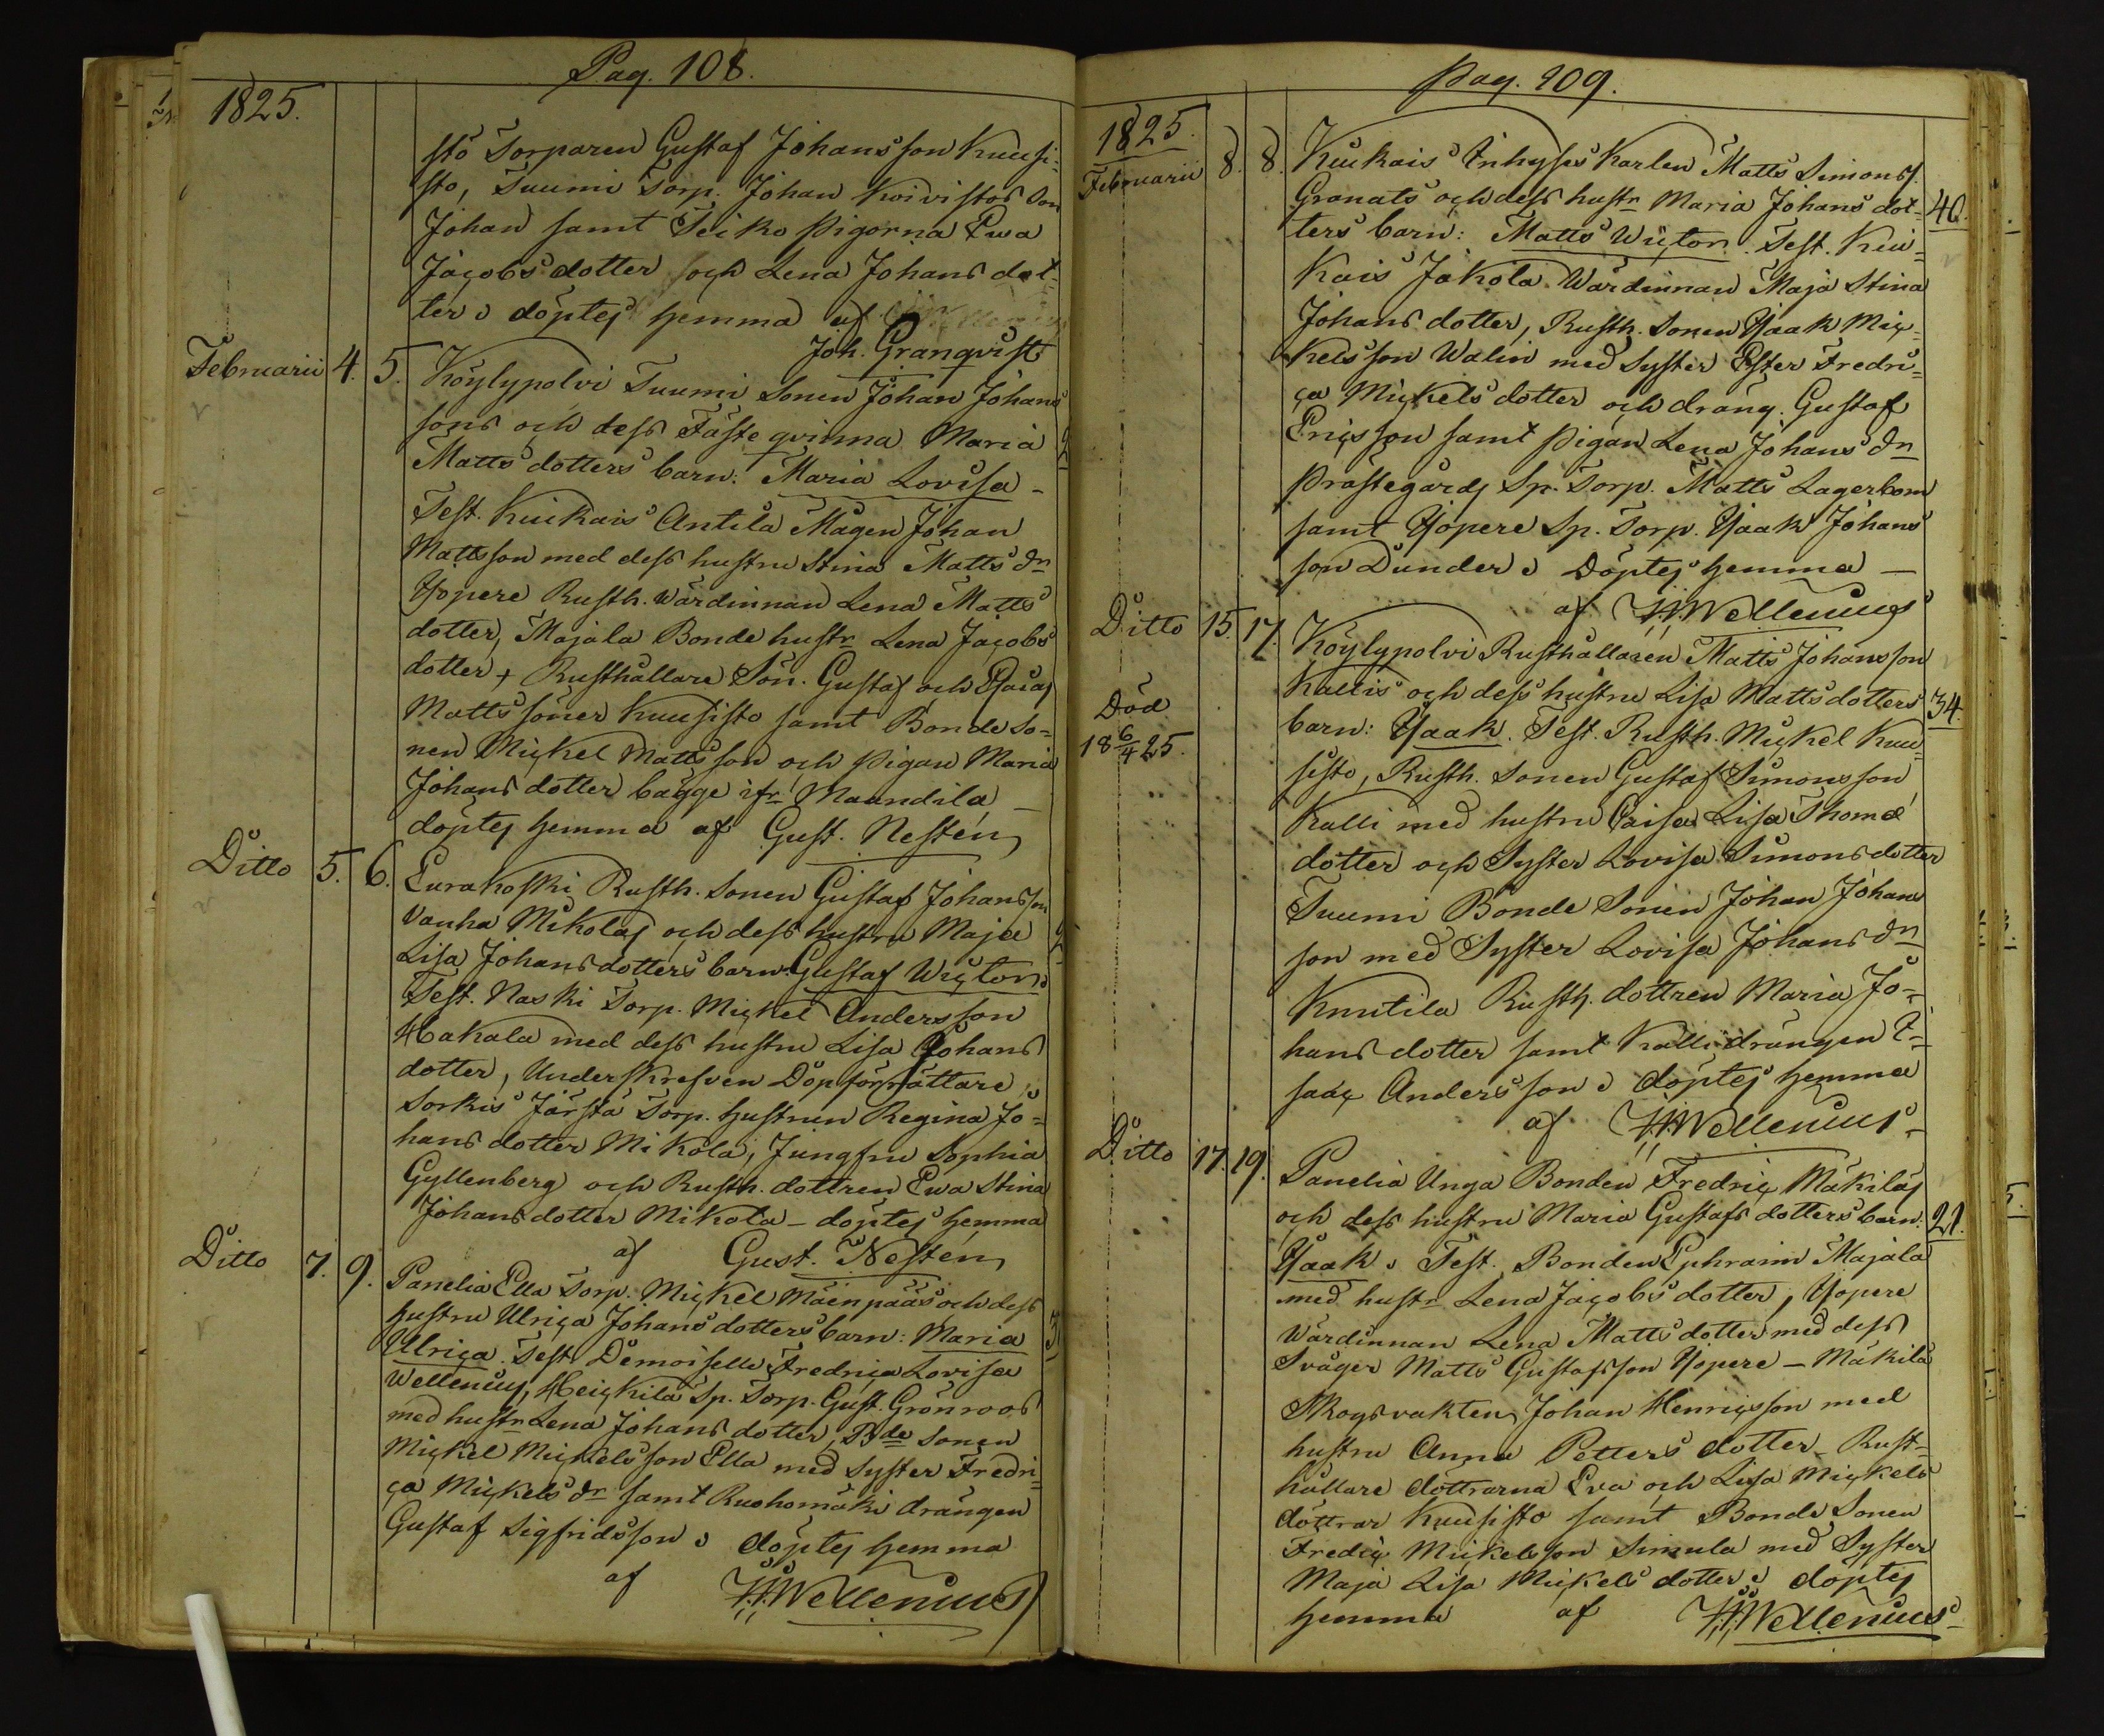 Pag. 108.
1825.
stö Torparen Gustaf Johansson Kuusi-
sto, Tuumi Torp. Johan Koivistos Son
Johan samt Teiko Pigorna Ewa
Jacobs dotter och Lena Johans dot-
ter döptes hemma af
Joh. Granqvist
Februarii 4. 5. Köylypolvi Tuumi Sonen Johan Johans
sons och dess Fäste qvinna Maria
Matts dotters barn: Maria Lovisa -
Test. Kiukais Antila Mågen Johan
Mattsson med dess hustru Stina Matts dr
Yopere Rusth. Wärdinnan Lena Matts
dotter, Majala Bonde hustr Lena Jacobs
dotter, Rusthållare Sön. Gustaf och Esaias
Matts söner Kuusisto samt Bonde So-
nen Mickel Mattsson och Pigan Maria
Johans dotter bägge ifr Maandila -
döptes hemma af Gust. Nestén
Ditto 5. 6. Eurakoski Rusth. Sonen Gustaf Johansson
Vanha Mikolas och dess hustru Maja
Lisa Johans dotters barn: Gustaf Wictor.
Test. Naski Torp. Mickel Andersson
Hakala med dess hustru Lisa Johans
dotter, Underskrefven Döpförrättare,
Sorkis Järstä Torp. hustrun Regina Jo-
hans dotter Mikola, Jungfru Sophia
Gyllenberg och Rusth. dottren Ewa Stina
Johans dotter Mikola - döptes hemma
af Gust. Nestén
Ditto 7. 9. Panelia Ella Torp. Mickel Mäenpääs och dess
hustru Ulrica Johans dotters barn: Maria
Ulrica. Test. Demoiselle Fredrica Lovisa
Wellenius, Heickilä Sp. Torp. Gust. Grönroos
med hustr Lena Johans dotter, Bde Sonen
Mickel Mickelsson Ella med Syster Fredri-
ca Mickels dr samt Ruohomäki drängen
Gustaf Sigfridsson döptes hemma
af H. Wellenius
Pag. 109.
1825.
Februarii 8. 8. Kiukais Inhyses Karlen Matts Simons.
Granats och dess hustr Maria Johans dot- 40.
ters barn: Matts Wictor. Test. Kiu-
kais Jakola Wärdinnan Maja Stina
Johans dotter, Rusth. Sonen Isaak Mic-
kelsson Walin med Syster Ester Fredri-
ca Mickels dotter och dräng. Gustaf
Ericsson samt Pigan Lena Johans dr
Prästegårds Sp. Torp. Matts Lagerbom
samt Yopere Sp. Torp. Isaak Johans
son Dunder döptes hemma -
af H. Wellenius
Ditto 15. 17. Köylypolvi Rusthållaren Matts Johansson
Kallis och dess hustru Lisa Matts dotters 34.
Död
18 6/4 25.
barn: Isaak. Test. Rusth. Mickel Kuu-
sisto, Rusth. Sonen Gustaf Simonsson
Kalli med hustru Caisa Lisa Thomæ
dotter och Syster Lovisa Simons dotter
Tuumi Bonde Sonen Johan Johans
son med Syster Lovisa Johans dr
Knutila Rusth. dottren Maria Jo-
hans dotter samt Kalli drängen I-
saac Andersson döptes hemma
af H. Wellenius -
Ditto 17. 19. Panelia Unga Bonden Fredric Mäkiläs
och dess hustru Maria Gustafs dotters barn: 21.
Isaak. Test. Bonden Ephraim Majala
med hustr Lena Jacobs dotter, Yopere
Wärdinnan Lena Matts dotter med dess
Svåger Matts Gustafsson Yopere - Mäkilä
Skogsvakten Johan Henricsson med
hustru Anna Petters dotter - Rust-
hållare döttrarna Eva och Lisa Mickels
döttrar Kuusisto samt Bonde Sonen
Fredric Mickelsson Simula med Syster
Maja Lisa Mickels dotter döptes
hemma af H. Wellenius -